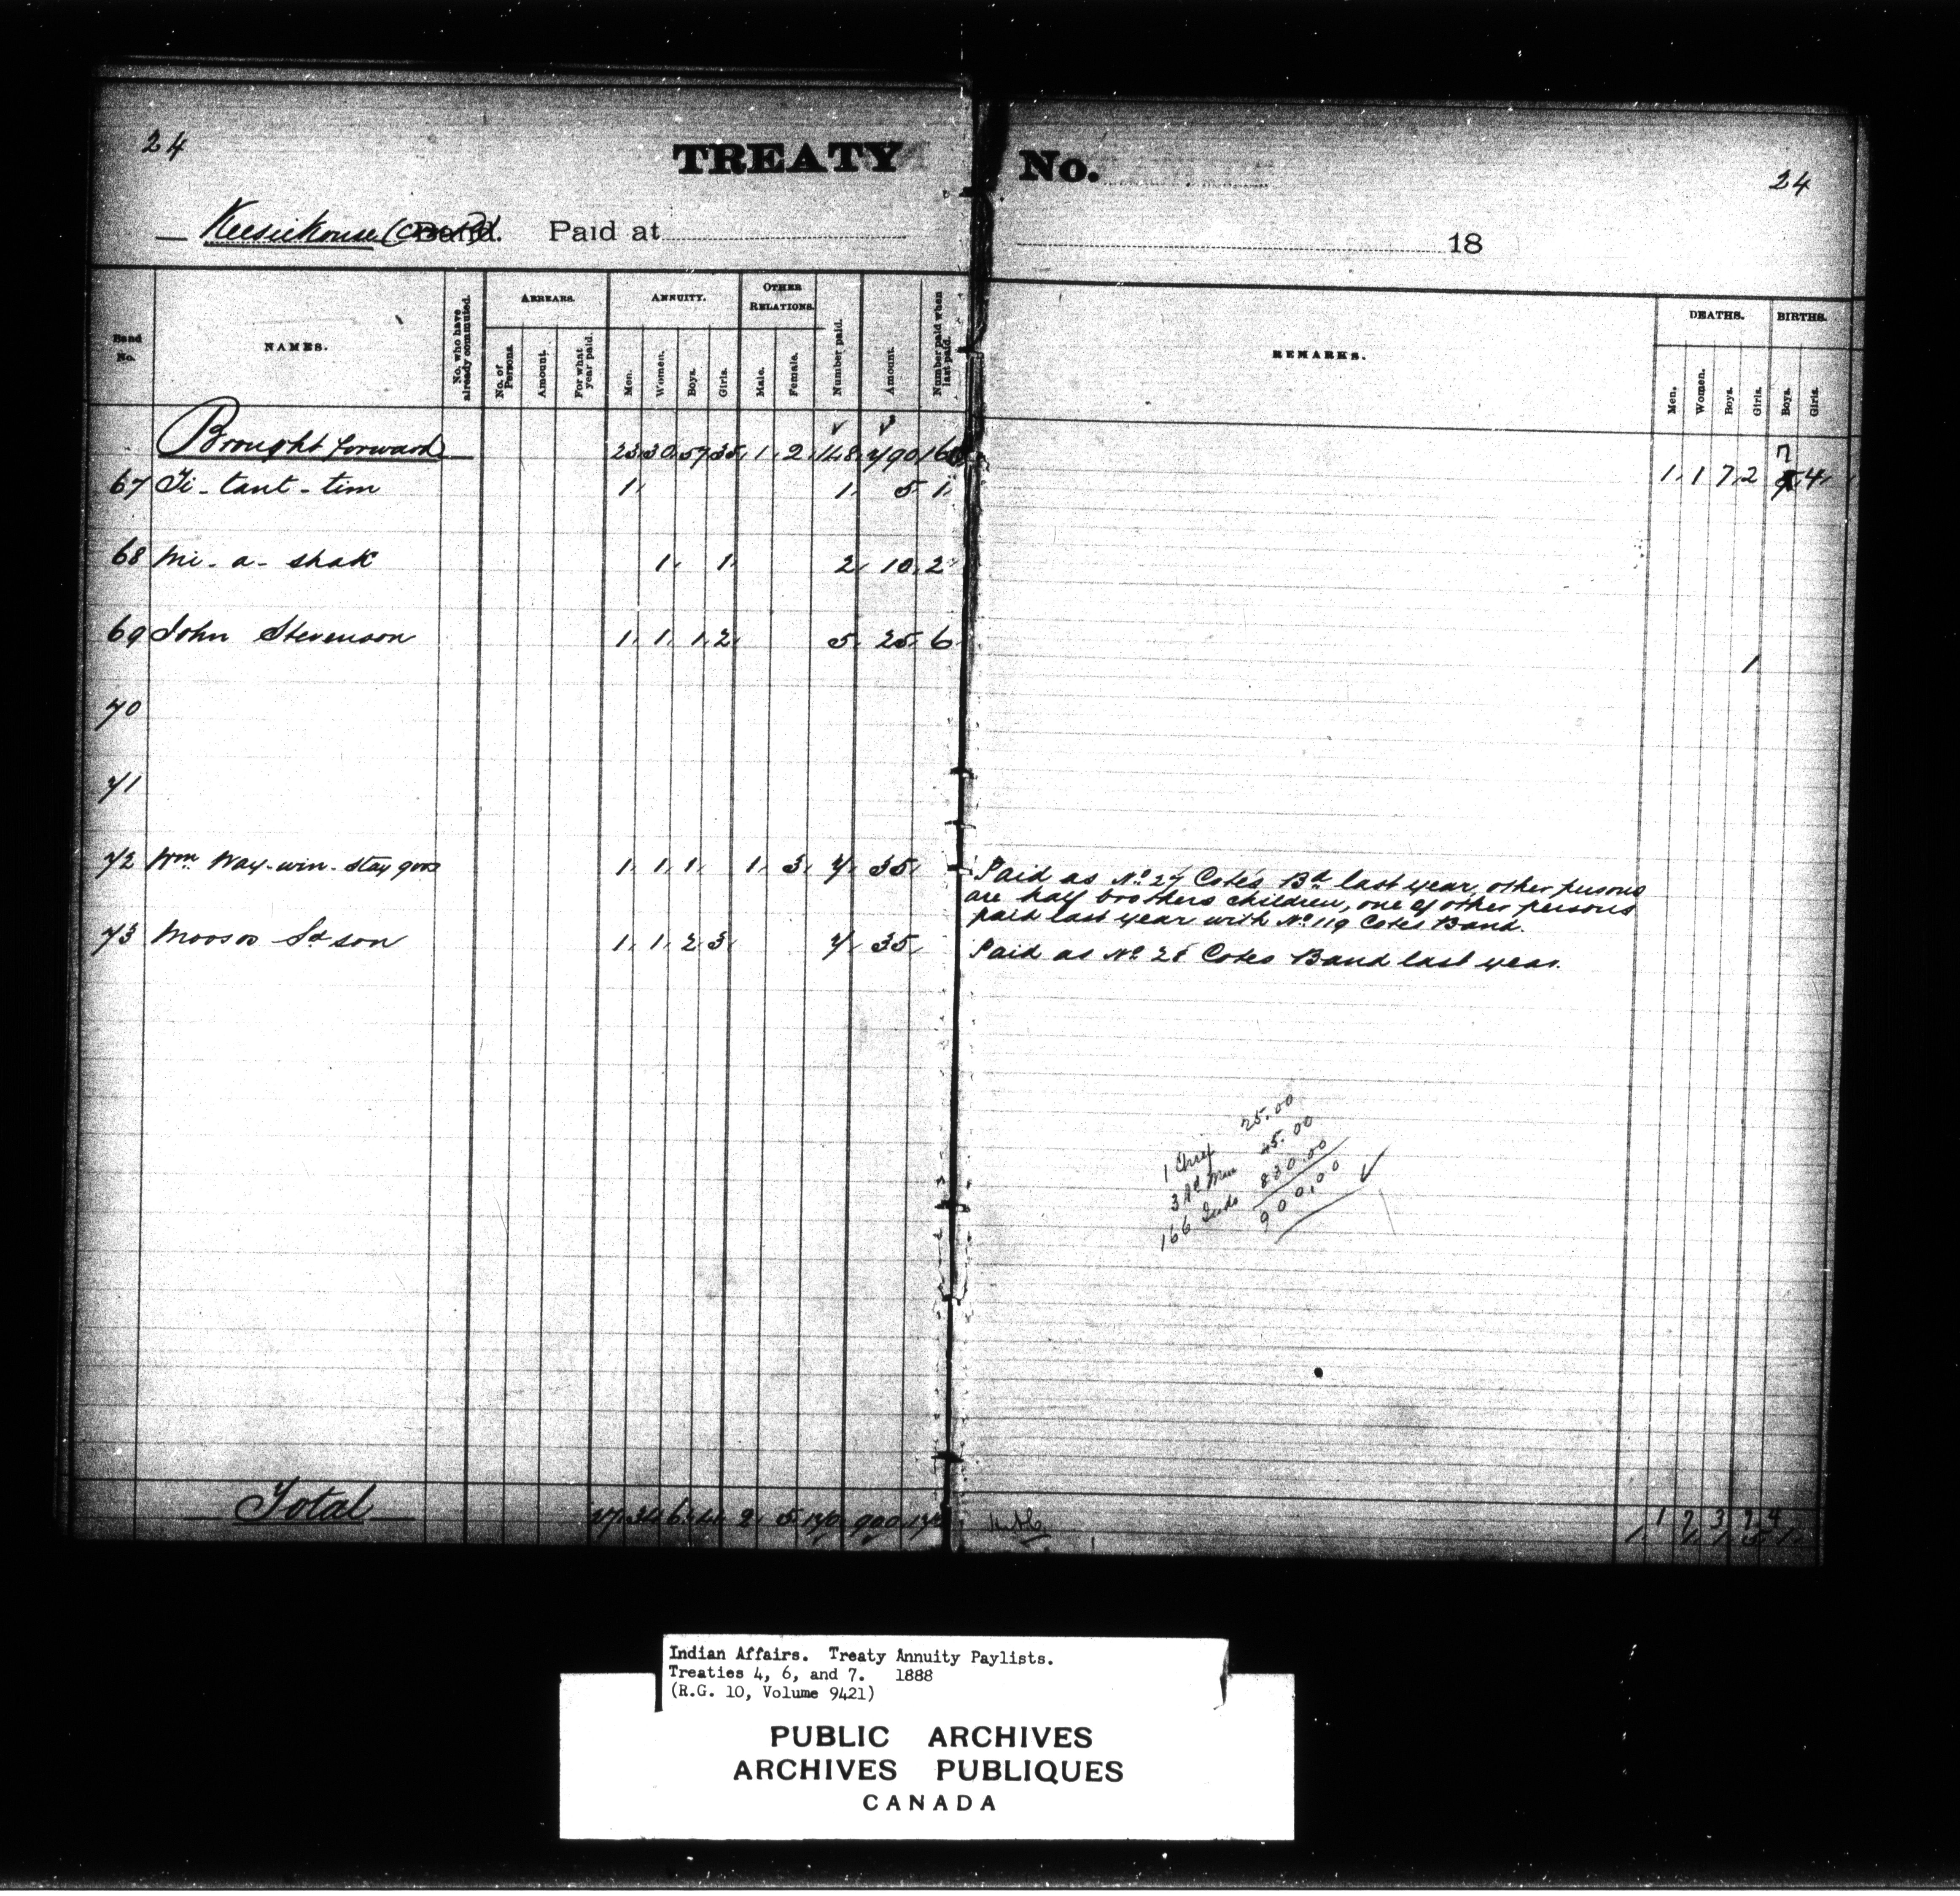 24
TREATY No.
24
Band. Paid at
18
Band No.
NAMES.
No. who have already commuted.
ARREARS.
No. of Persons.
Amount.
For what year paid.
ANNUITY.
Men.
Women.
Boys.
Girls.
OTHER RELATIONS.
Male.
Female.
Number paid.
Amount.
Number paid when last paid.
REMARKS.
DEATHS.
Men.
Women.
Boys.
Girls.
BIRTHS.
Boys.
Girls.
Brought forward 23, 30, 57, 35, 1, 2, 148, 790
1, 1 7, 2 7 4,
67 Ti-tant-tim 1, 1, 5, 1,
68 Mi-a-shak 1, 1, 2, 10, 2
69 John Stevenson 1, 1, 1, 2, 5, 25, 6
1
70
71
72 Wm Way-win-stay goos 1, 1, 1, 1, 3, 7, 35,
Paid as No. 27 Cote's Bd last year, other persons
are half brothers children, one of other persons
paid last year with No. 119 Cotes Band.
73 Moosoo Sd son 1, 1, 2, 3, 7, 35,
Paid as No. 28 Cotes Band last year.
1 Chief 25.00
3 Hd Men 45.00
166 Inds 830.00
900.00
Total 27, 34, 2, 5, 170, 900
Indian Affairs. Treaty Annuity Paylists.
Treaties 4, 6, and 7. 1888
(R.G. 10, Volume 9421)
PUBLIC ARCHIVES
ARCHIVES PUBLIQUES
CANADA